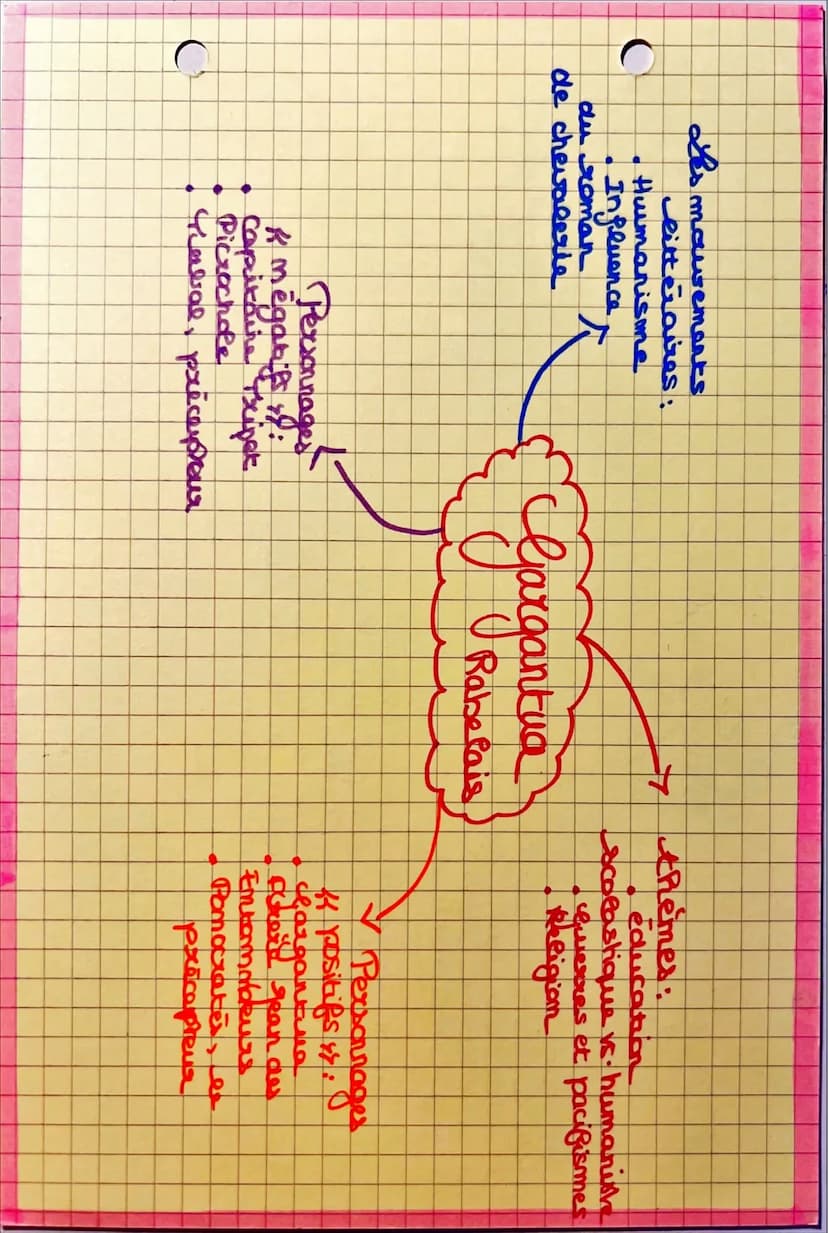 Les mouvements
littéraires :
• Humanisme
• Influence
du roman
de chevalerie
thèmes :
• éducation
scolastique vs. humaniste
• Guerres et pacifismes
• Religion
Gargantua
Rabelais
Personnages
« négatifs » :
• Capitaine Tripet
• Picrochole
• précepteur
Personnages
« positifs » :
• Gargantua
• Jean des
Entommeures
• Ponocrates, le
précepteur